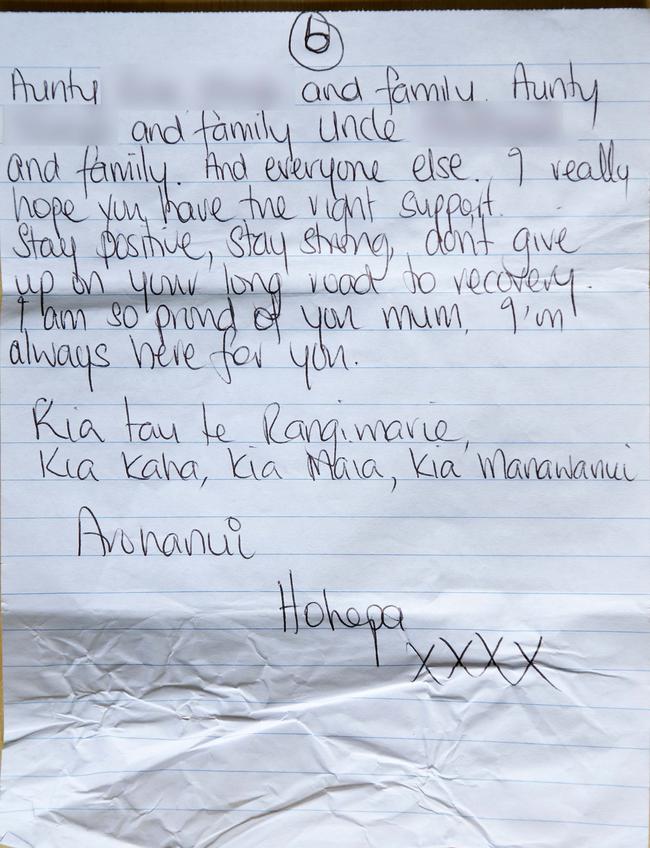 6
Aunty and family. Aunty
and family Uncle
and family. And everyone else. I really
hope you have the right support.
Stay positive, stay strong, don't give
up on your long road to recovery.
I am so proud of you mum, I'm
always here for you.
Kia tau te Rangimarie,
Kia Kaha, Kia Maia, Kia Manawanui
Arohanui
Hohepa
xxxx